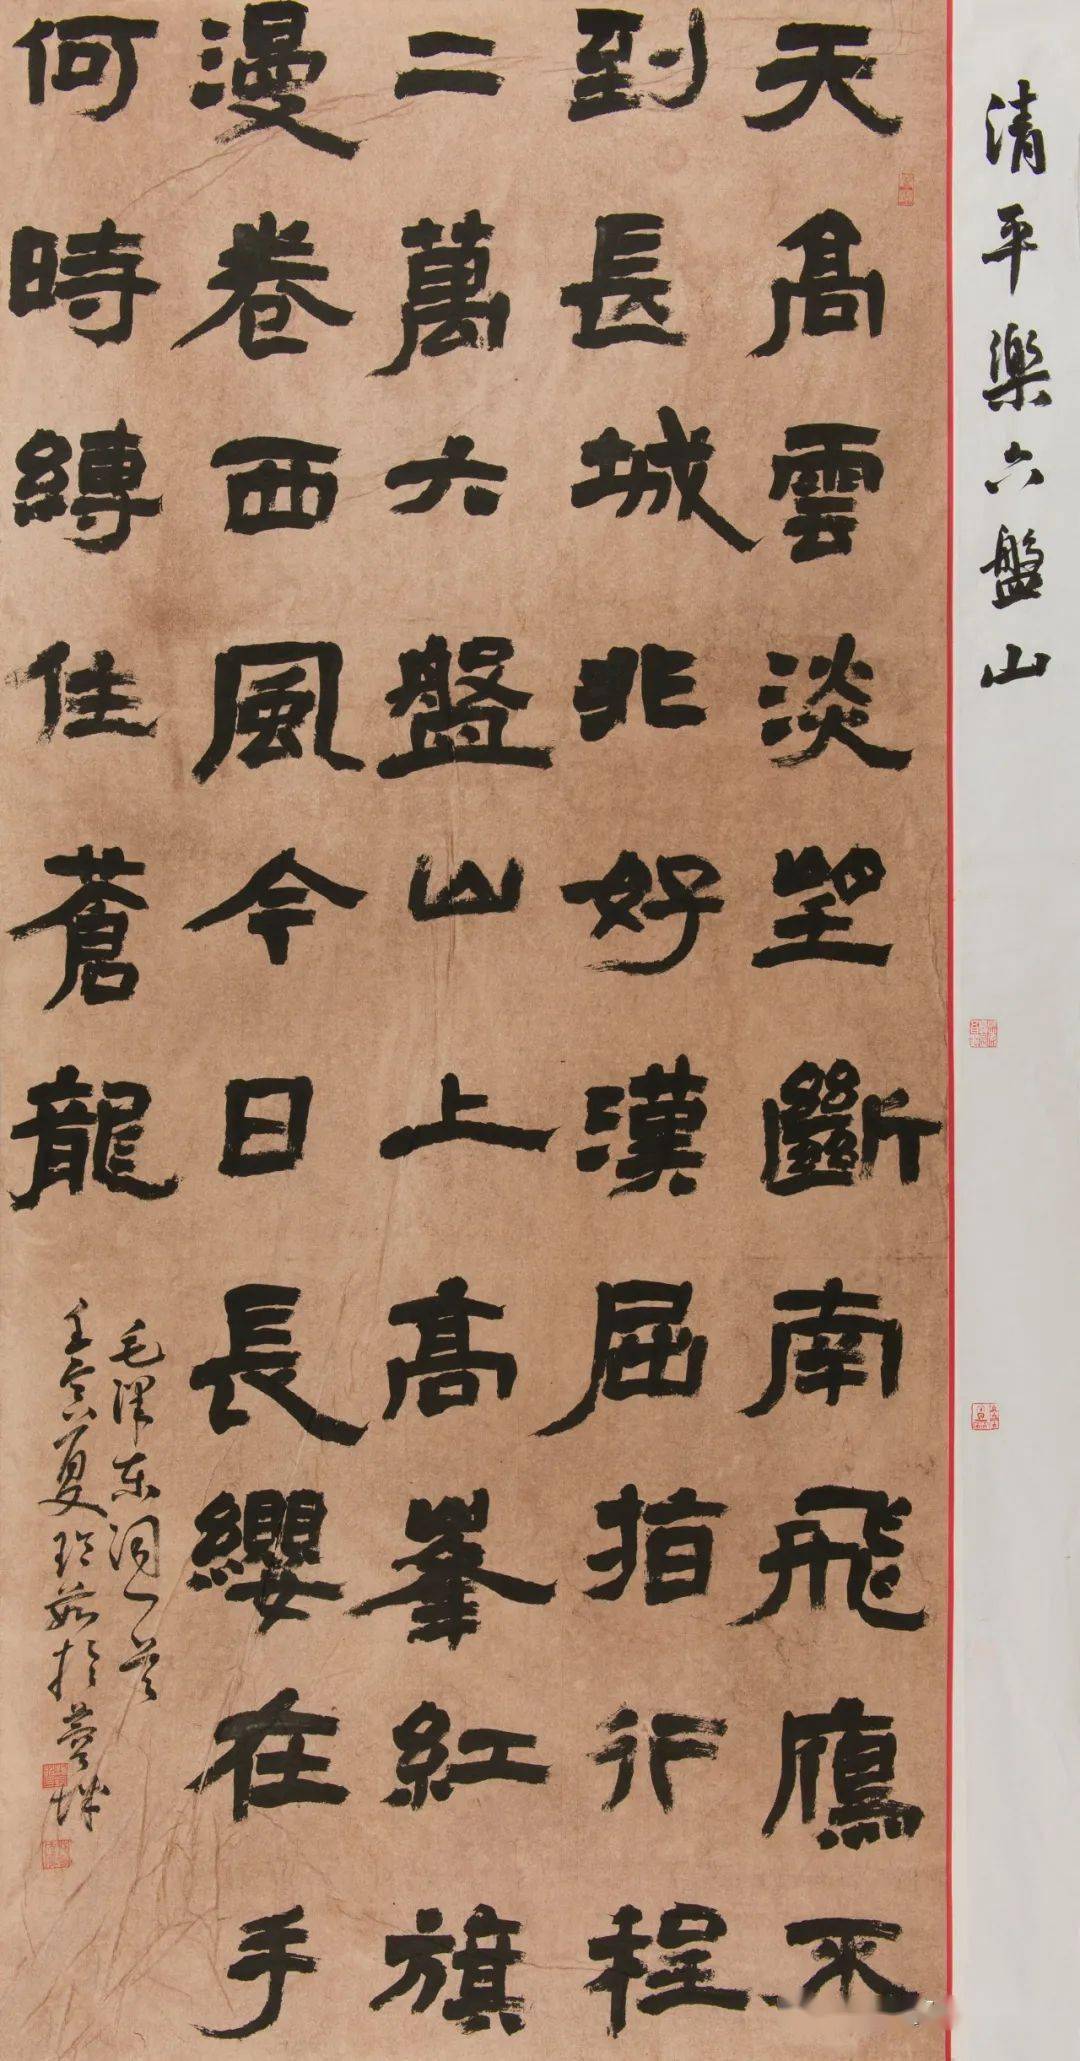 清平樂六盤山
天高雲淡望斷南飛鴈不
到長城非好漢屈指行程
二萬六盤山上高峯紅旗
漫卷西風今日長纓在手
何時縛住蒼龍
毛澤東詞一首
壬寅夏於